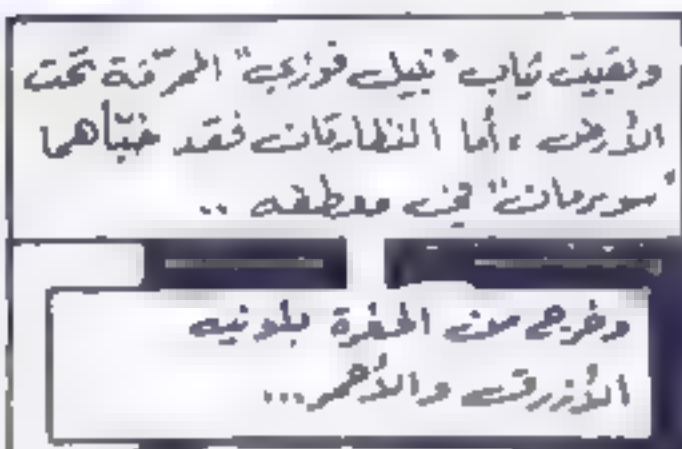 وبقيت ثياب "نبيل فوزي" الممزّقة تحت
الأرض ، أما النظارتان فقد خبّأهما
"سوبرمان" في معطفه ..
وخرج من الحفرة بلونيه
الأزرق والأحمر...